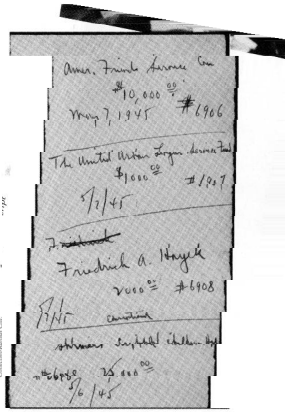 Amer. Friends Service Com
$10,000 00
May 7, 1945 #6906
The United Urban League Service Fund
$1000 00 #1907
5/7/45
Friedrich A. Hayek
2000 00 #6908
5/7/45 cancelled
25,000 00
5/6/45